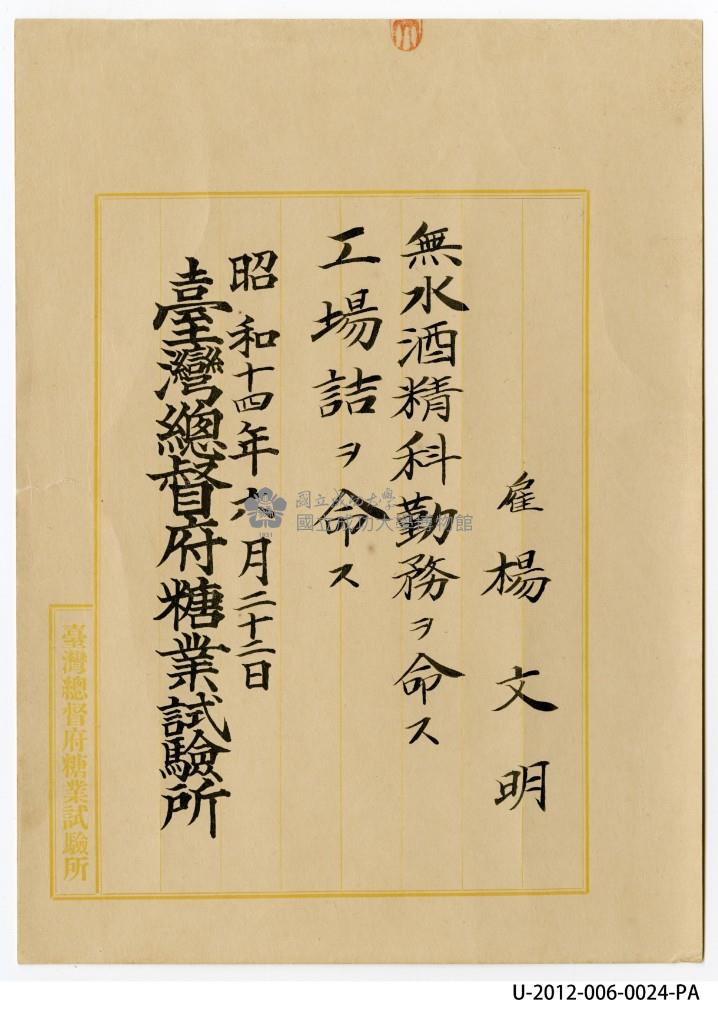 雇 楊文明
無水酒精科勤務ヲ命ス
工場詰ヲ命ス
昭和十四年六月二十二日
臺灣總督府糖業試驗所
臺灣總督府糖業試驗所
國立成功大學
國立成功大學博物館
1931
U-2012-006-0024-PA